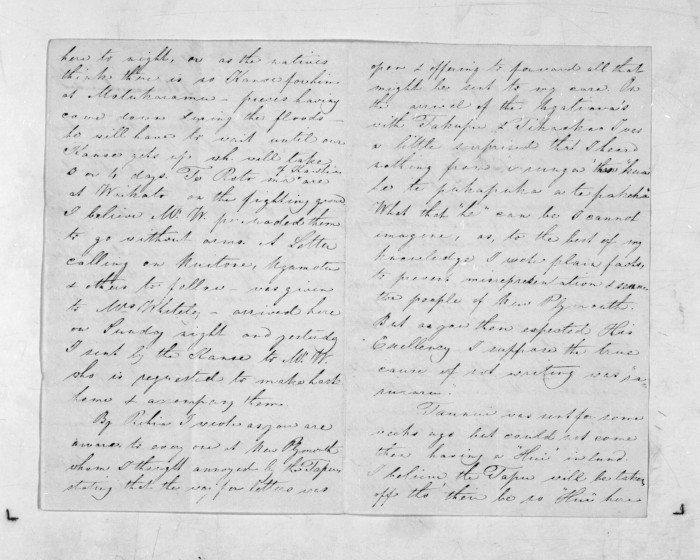 here to night, or as the natives
think there is no Kanoe for him
at Motukaramu – pieces having
come down during the floods –
he will have to wait until our
Kanoe gets up wh. will take
3 or 4 days. Te Roto & Karslin are
at Waikato on the fighting ground
I believe Mr. W. persuaded them
to go without arms. A Letter
calling on Ngamotu
& others to follow – was given
to Mrs Whiteley – arrived here
on Sunday night and yesterday
I sent by the Kanoe to Mr. W.
who is requested to make haste
home & accompany them.
By I wrote as you are
aware to every one at New Plymouth
whom I thought annoyed by the Tapu,
stating that the way for letters was
open & offering to forward all that
might be sent to my care. On
the arrival of the
with Takupu & I was
a little surprised that I heard
nothing from
he to pukapuka a te pakeha"
What that "he" can be I cannot
imagine, as, to the best of my
knowledge I wrote plain facts,
to prevent misrepresentation &
the people of New Plymouth.
But as you then expected His
Excellency I suppose the true
cause of not writing was "ra-
ruraru".
was sent for some
weeks ago but could not come
then having a "Hui" inland.
I believe the Tapu will be taken
off tho' there be no "Hui" here